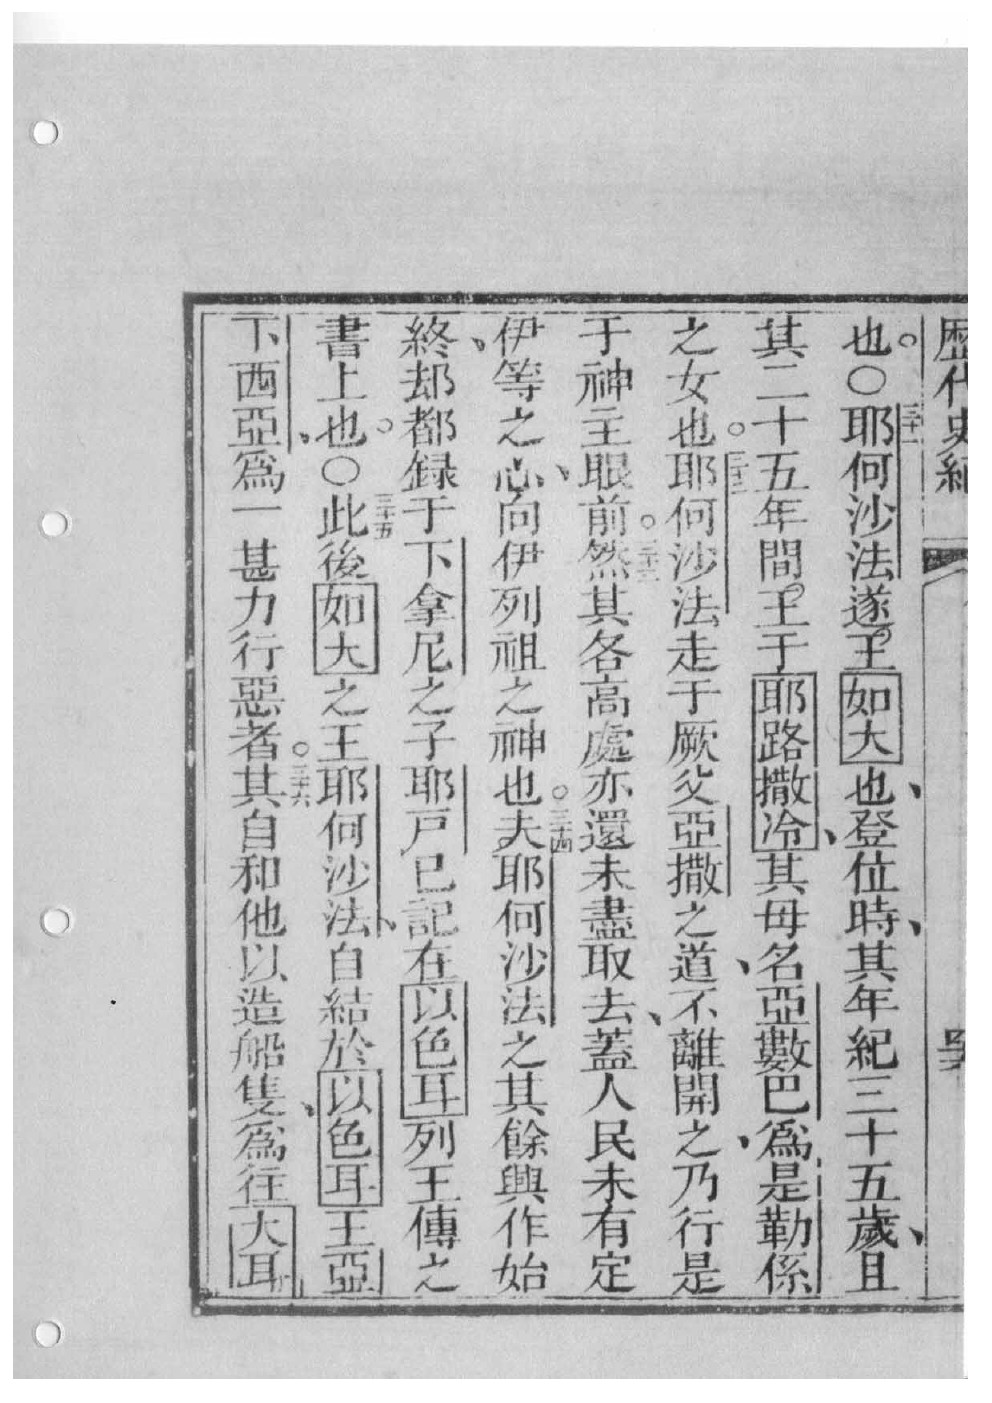 歷代史紀
也。〇三十一耶何沙法遂王如大也、登位時、其年紀三十五歲、且
其二十五年間王于耶路撒冷、其母名亞數巴爲是勒係
之女也。三十二耶何沙法走于厥父亞撒之道、不離開之、乃行是
于神主眼前。三十三然其各高處亦還未盡取去、蓋人民未有定
伊等之心、向伊列祖之神也。三十四夫耶何沙法之其餘與作始
終、却都録于下拿尼之子耶戸已記在以色耳列王傳之
書上也。〇三十五此後如大之王耶何沙法、自結於以色耳王亞
下西亞、爲一甚力行惡者。三十六其自和他以造船隻、爲往大耳